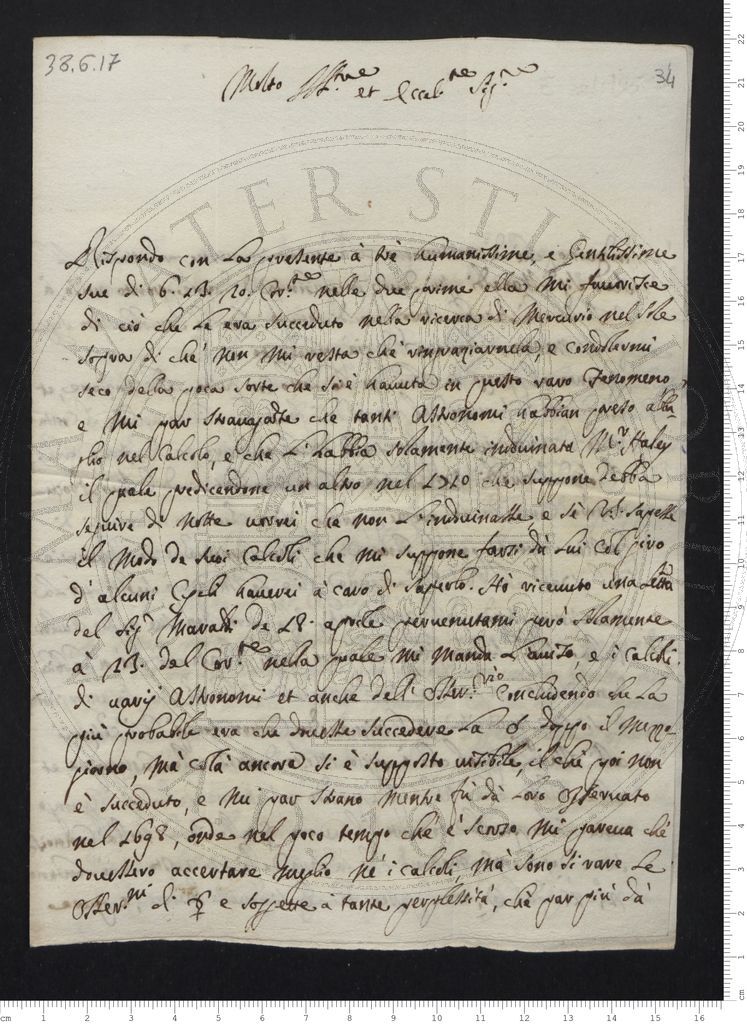 38.6.17
34
Molto Ill.tre et Eccell.te Sig.re
Rispondo con la presente à trè humanissime, e Gentilissime
sue di 6. 13. 20. Cor.te nelle due prime ella mi favorisce
di ciò che le era succeduto nella ricerca di Mercurio nel Sole
sopra di che non mi resta che ringraziarnela, e condolermi
seco della poca sorte che si è havuta in questo raro Fenomeno
e mi par che tanti Astronomi habbian preso
nel Calcolo, e che l'habbia solamente indovinata M.r Haley
il quale predicendone un altro nel 1720 che suppone debba
seguire di notte vorrei che non l'indovinasse, e sè V.S. sapesse
il modo de suoi Calcoli che mi suppone farsi dà lui col giro
d'alcuni Cicli haverei à caro di saperlo. Hò ricevuto una lettra
del Sig.r Maraldi de 18. aprile pervenutami però solamente
à 23. del Cor.te nella quale mi manda l'aviso, e i calcoli
di varij Astronomi et anche dell' Osser.rio Concludendo che la
più probabile era che dovesse succedere la ☌ doppo il mezzo-
giorno, mà colà ancora si è supposto visibile, il che poi non
è succeduto, e mi par strano mentre fù dà loro osservato
nel 1698, onde nel poco tempo ch'è scorso mi pareva che
dovessero accertare meglio nè i calcoli, mà sono sì rare le
Osser.ni di ☿ e soggette à tante perplessità, che par più dà